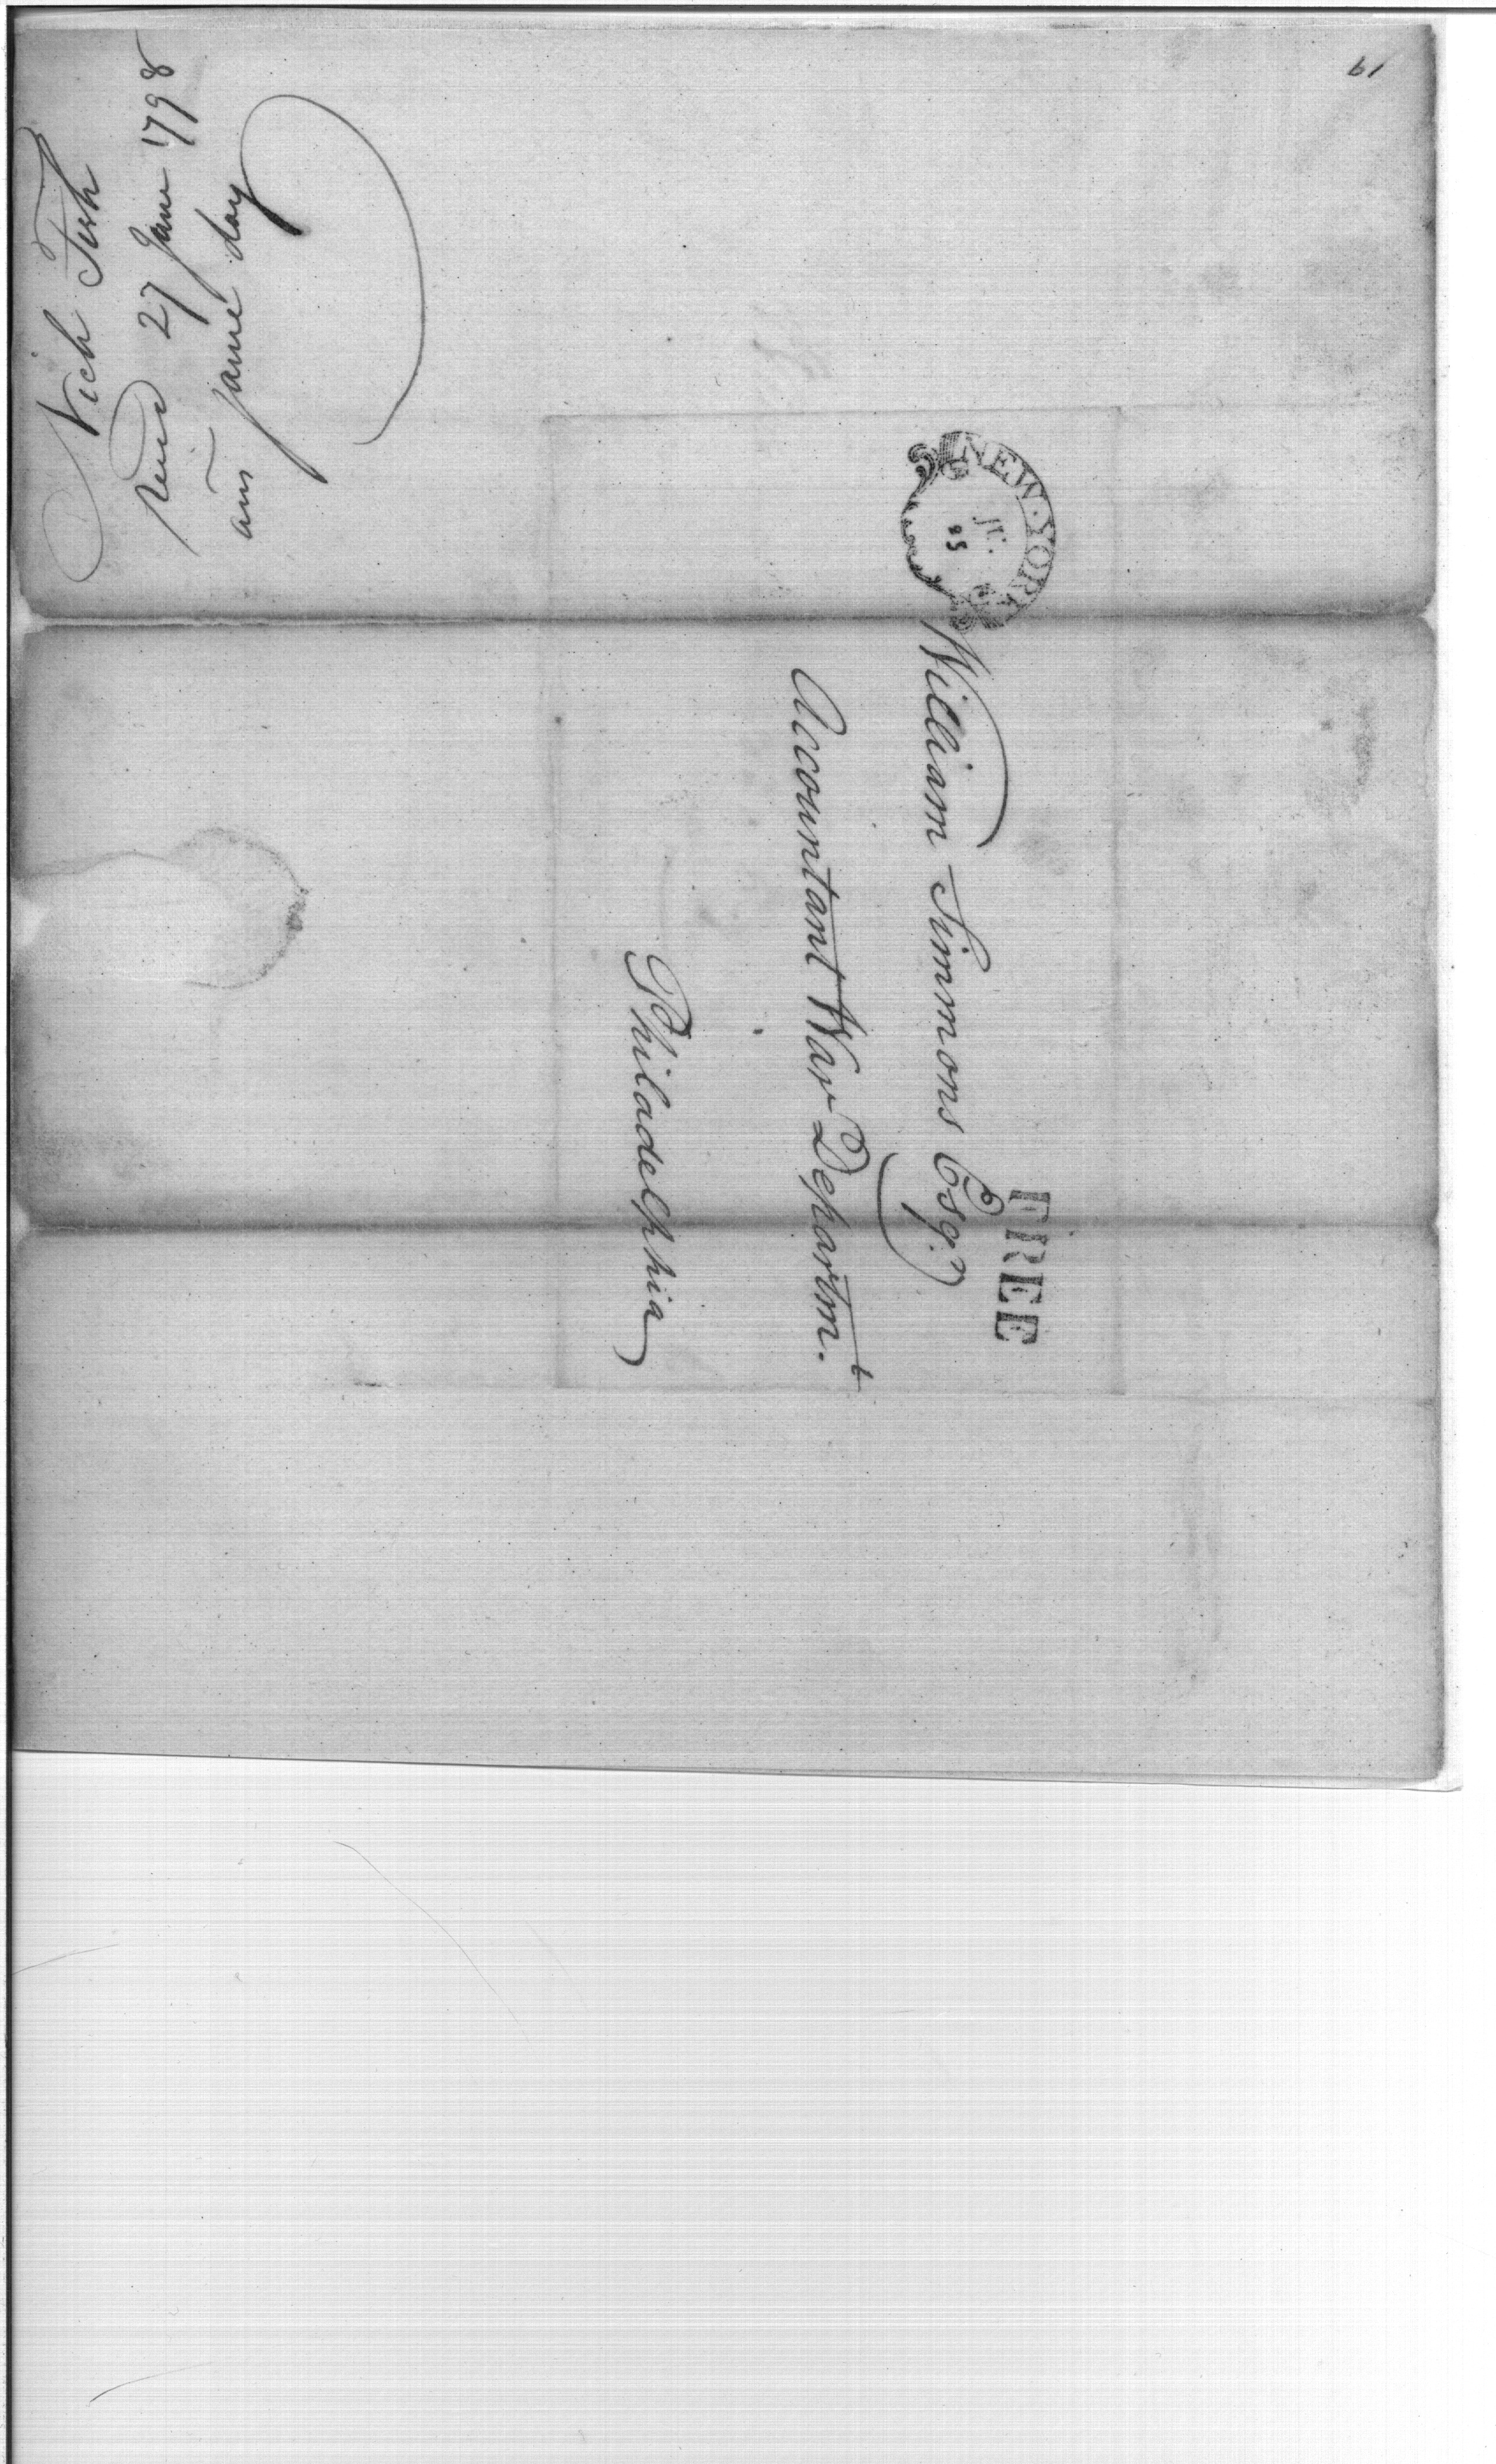 Nich Fish
Recd 27 June 1798
ans same day
61
NEW-YORK
JE.
25
FREE
William Simmons Esqr.
Accountant War Departmt.
Philadelphia